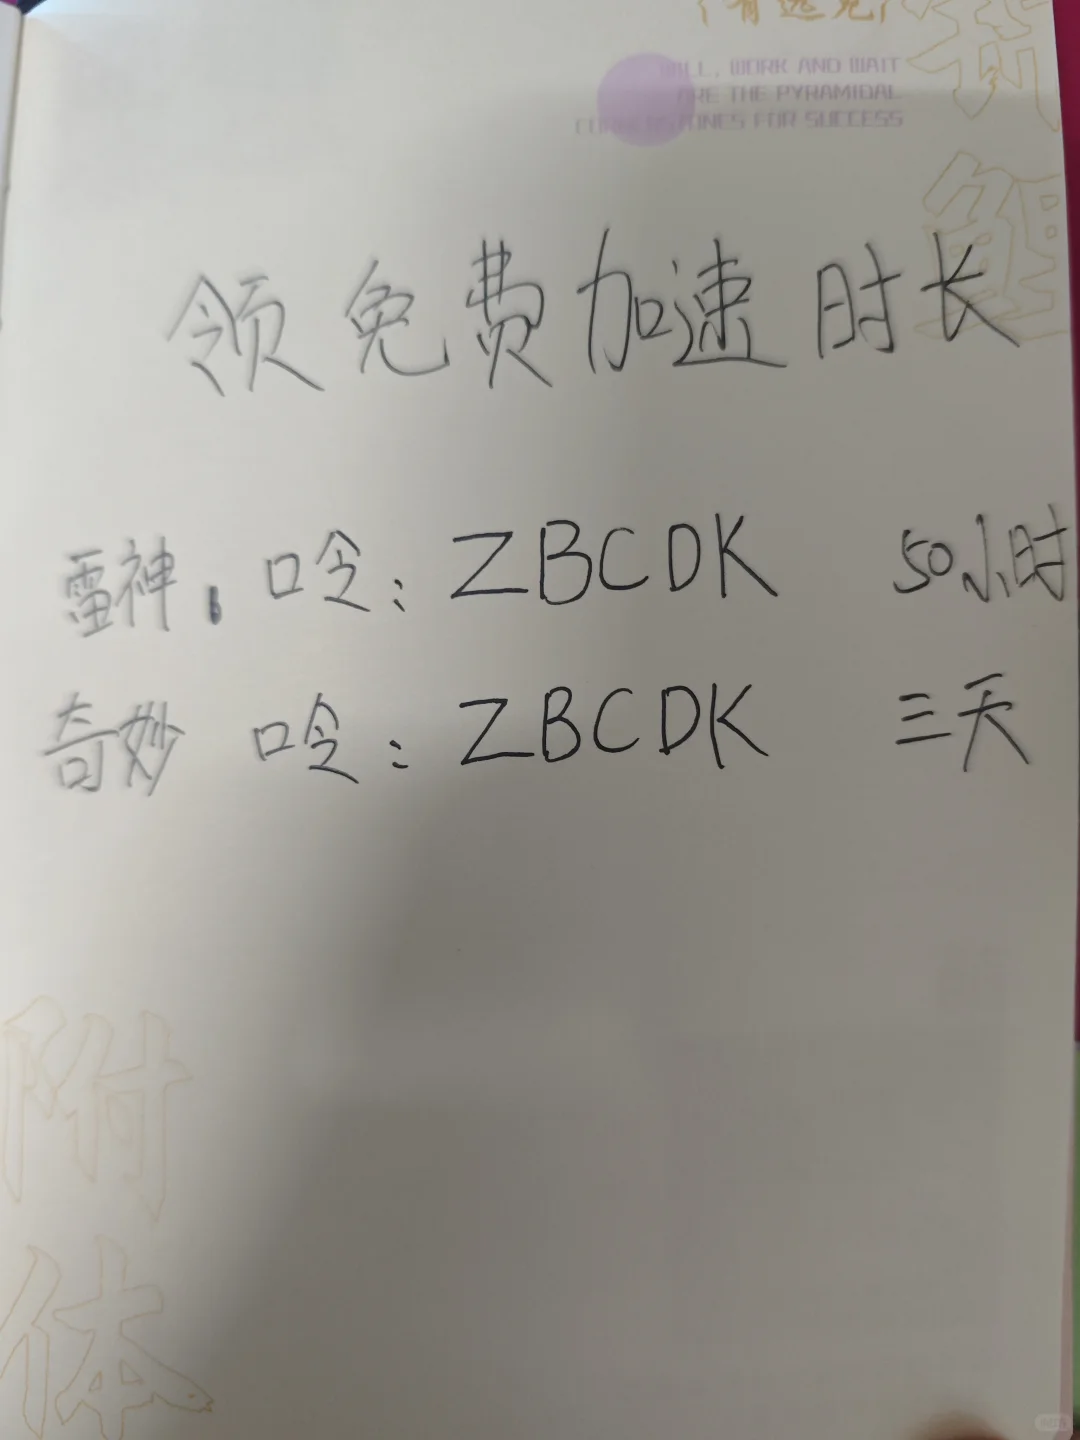 WILL, WORK AND WAIT
ARE THE PYRAMIDAL
CORNERSTONES FOR SUCCESS
锦
鲤
领免费加速时长
雷神，口令：ZBCDK 50小时
奇妙 口令：ZBCDK 三天
附
体